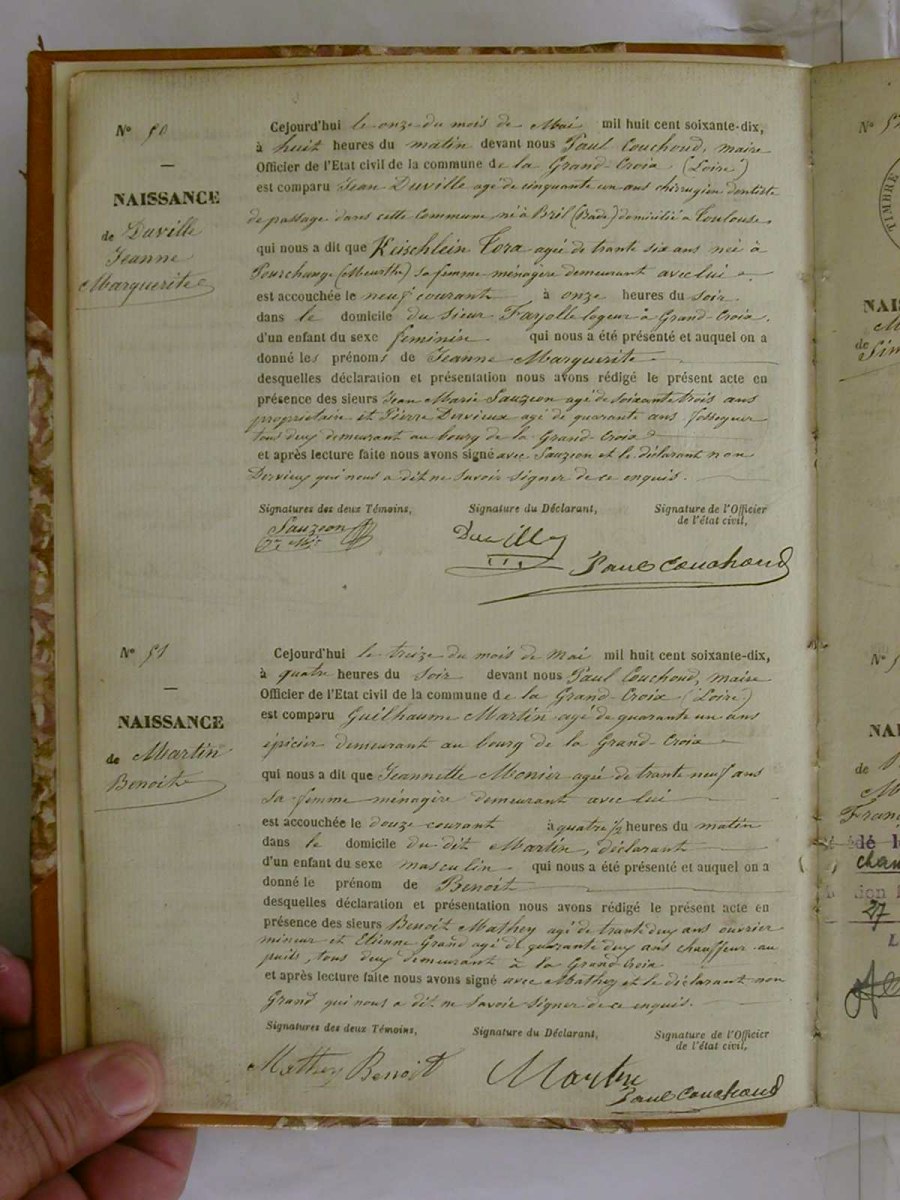 Nº 50
NAISSANCE
de Duville
Jeanne
Marguerite
Cejourd'hui le onze du mois de Mai mil huit cent soixante-dix,
à huit heures du matin devant nous Paul Couchoud, maire
Officier de l'Etat civil de la commune de la Grand-Croix (Loire)
est comparu Jean Duville agé de cinquante un ans chirugien dentiste
de passage dans cette Commune né à Bril (Bade) domicilié à Toulouse,
qui nous a dit que Keischlein Cora agée de trante six ans née à
(Meurthe) sa femme ménagère demeurant avec lui
est accouchée le neuf courant à onze heures du soir
dans le domicile du sieur Fayolle logeur à Grand-Croix.
d'un enfant du sexe feminin qui nous a été présenté et auquel on a
donné les prénoms de Jeanne Marguerite
desquelles déclaration et présentation nous avons rédigé le présent acte en
présence des sieurs Jean Marie Sauzion agé de soixante trois ans
propriétaire et Pierre Dervieux agé de quarante ans fossoyeur
tous deux demeurant au bourg de la Grand-Croix
et après lecture faite nous avons signé avec Sauzion et le déclarant non
Dervieux qui nous a dit ne savoir signer de ce enquis.
Signatures des deux Témoins, Signature du Déclarant, Signature de l'Officier
de l'état civil,
Sauzion
Duvilly
Paul Couchoud
Nº 51
NAISSANCE
de Martin
Benoit
Cejourd'hui le treize du mois de Mai mil huit cent soixante-dix,
à quatre heures du soir devant nous Paul Couchoud, maire
Officier de l'Etat civil de la commune de la Grand-Croix (Loire)
est comparu Guilhaume Martin agé de quarante un ans
épicier demeurant au bourg de la Grand-Croix
qui nous a dit que Jeannette Monier agée de trante neuf ans
sa femme ménagère demeurant avec lui
est accouchée le douze courant à quatre ½ heures du matin
dans le domicile du dit Martin, déclarant
d'un enfant du sexe masculin qui nous a été présenté et auquel on a
donné le prénom de Benoit
desquelles déclaration et présentation nous avons rédigé le présent acte en
présence des sieurs Benoit Mathey agé de trante deux ans ouvrier
mineur et Etienne Grand agé de quarante deux ans chauffeur au
puis, tous deux demeurant à la Grand-Croix
et après lecture faite nous avons signé avec Mathey et le déclarant non
Grand qui nous a dit ne savoir signer de ce enquis.
Signatures des deux Témoins, Signature du Déclarant, Signature de l'Officier
de l'état civil,
Mathey Benoit
Martin
Paul Couchoud
TIMBRE
NAI
de
Nº
NAI
de
Fran
dé l
27